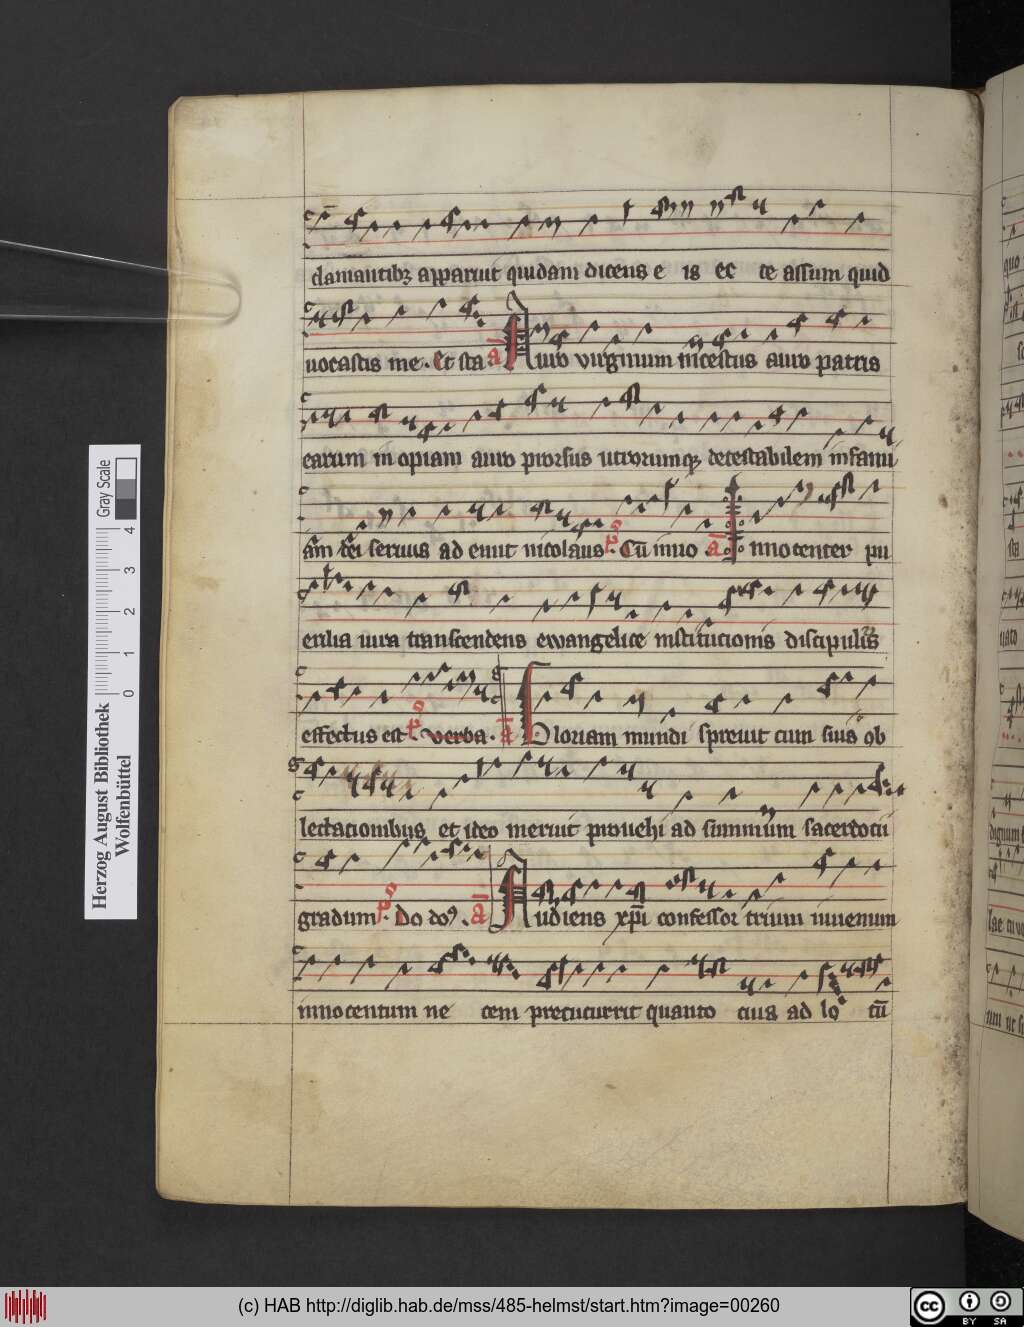 clamantibꝫ apparuit quidam dicens e is ec ce assum quid
uocastis me. Et sta a Auro virginum incestus auro patris
earum inopiam auro prorsus utrorumqꝫ detestabilem infami
am dei seruus ad emit nicolaus. ps Cū inuo a Innocenter pu
erilia iura transcendens ewangelice institucionis discipulus
effectus est. ps verba. a Gloriam mundi spreuit cum suis ob
lectacionibus et ideo meruit prouehi ad summum sacerdocii
gradum. ps Do do. a Audiens xp̄i confessor trium iuuenum
innocentum ne cem precucurrit quanto cius ad lo cū
Gray Scale
0 1 2 3 4
Herzog August Bibliothek
Wolfenbüttel
(c) HAB http://diglib.hab.de/mss/485-helmst/start.htm?image=00260
cc BY SA